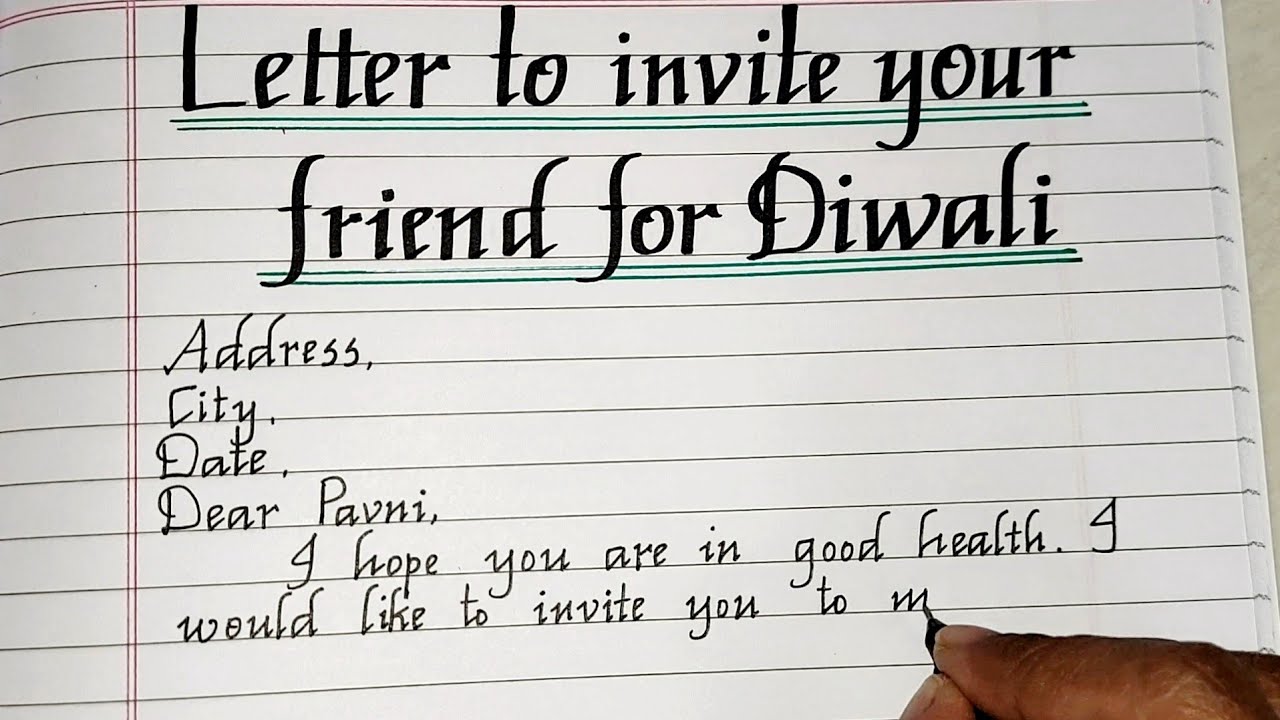 Letter to invite your
friend for Diwali
Address,
City,
Date,
Dear Pavni,
I hope you are in good health. I
would like to invite you to m